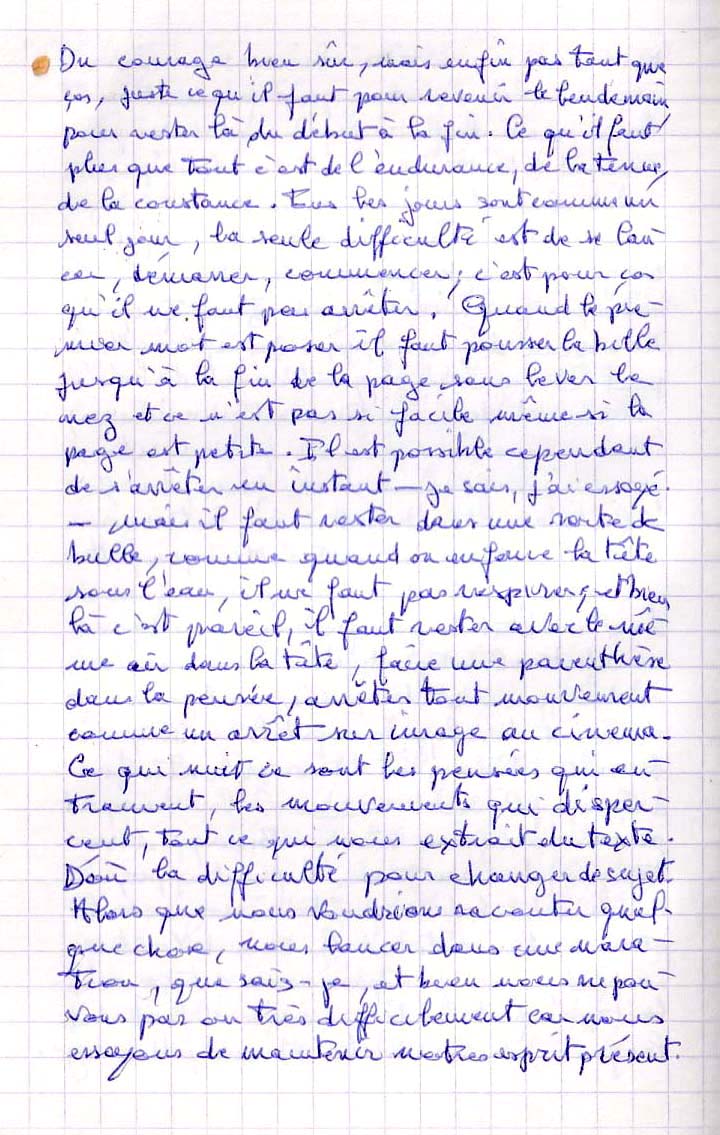 Du courage bien sûr, mais enfin pas tant que
ça, juste ce qu'il faut pour revenir le lendemain,
pour rester là du début à la fin. Ce qu'il faut
plus que tout c'est de l'endurance, de la tenue,
de la constance. Tous les jours sont comme un
seul jour, la seule difficulté est de se lan-
cer, démarrer, commencer ; c'est pour ça
qu'il ne faut pas arrêter. Quand le pre-
mier mot est poser il faut pousser la bille
jusqu'à la fin de la page sans lever le
nez et ce n'est pas si facile même si la
page est petite. Il est possible cependant
de s'arrêter un instant — je sais, j'ai essayé
— mais il faut rester dans une sorte de
bulle, comme quand on enfonce la tête
sous l'eau, il ne faut pas respirer, et bien
là c'est pareil, il faut rester avec le mê
me air dans la tête, faire une parenthèse
dans la pensée, arrêter tout mouvement
comme un arrêt sur image au cinema.
Ce qui nuit ce sont les pensées qui en-
trainent, les mouvements qui disper-
cent, tout ce qui nous extrait du texte.
D'où la difficulté pour changer de sujet.
Alors que nous voudrions raconter quel-
que chose, nous lancer dans une narra-
tion, que sais-je, et bien nous ne pou-
vons pas ou très difficilement car nous
essayons de maintenir notre esprit présent.